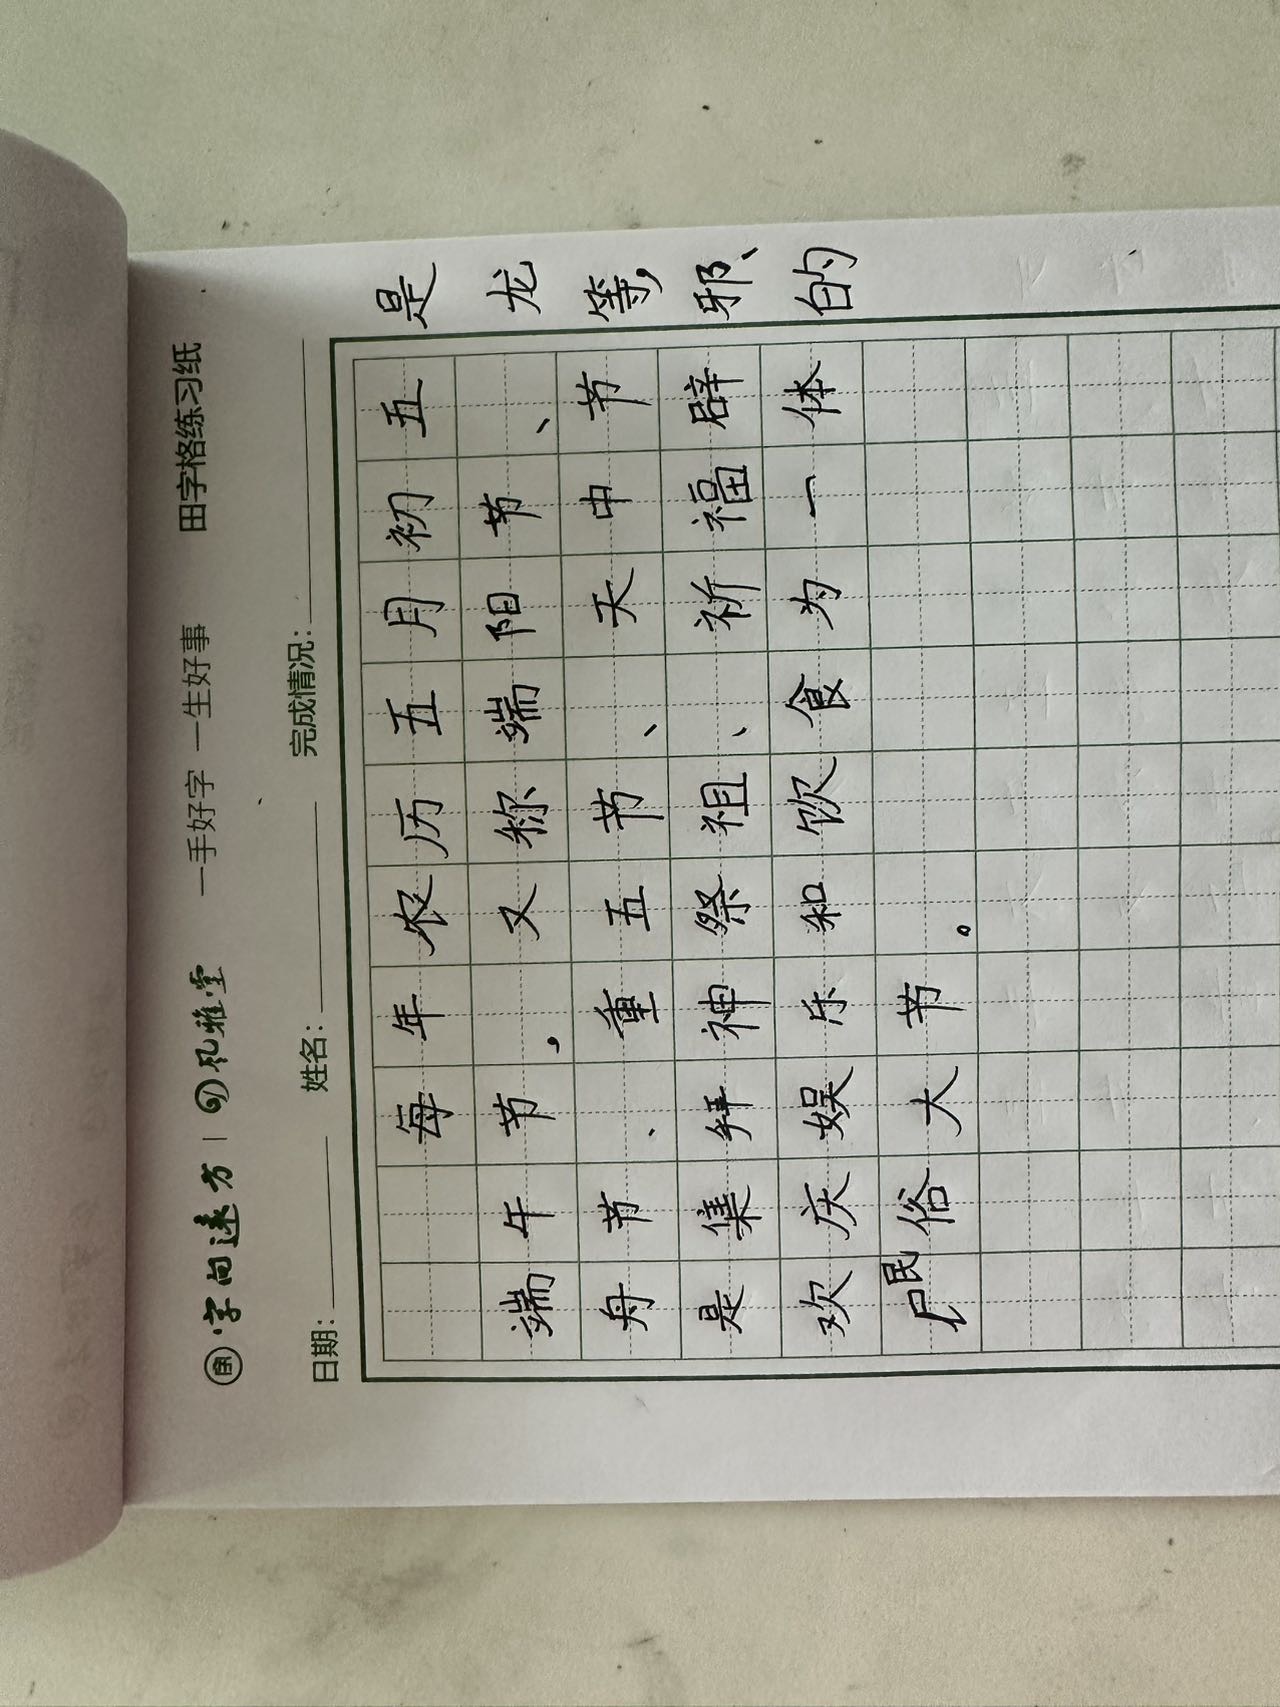 字向远方 | 风雅堂 一手好字 一生好事 田字格练习纸
日期： 姓名： 完成情况：
每年农历五月初五是
端午节，又称端阳节、龙
舟节、重五节、天中节等，
是集拜神祭祖、祈福辟邪、
欢庆娱乐和饮食为一体的
民俗大节。